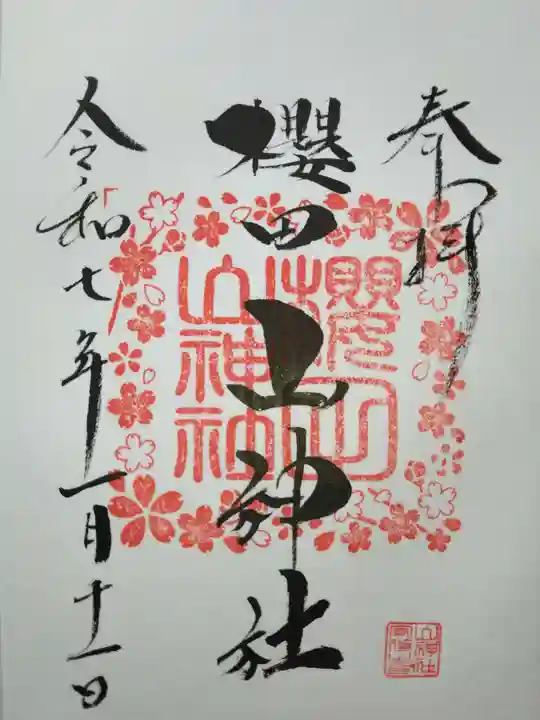 奉拝
櫻田山神社
櫻田
山神社
令和七年一月十一日